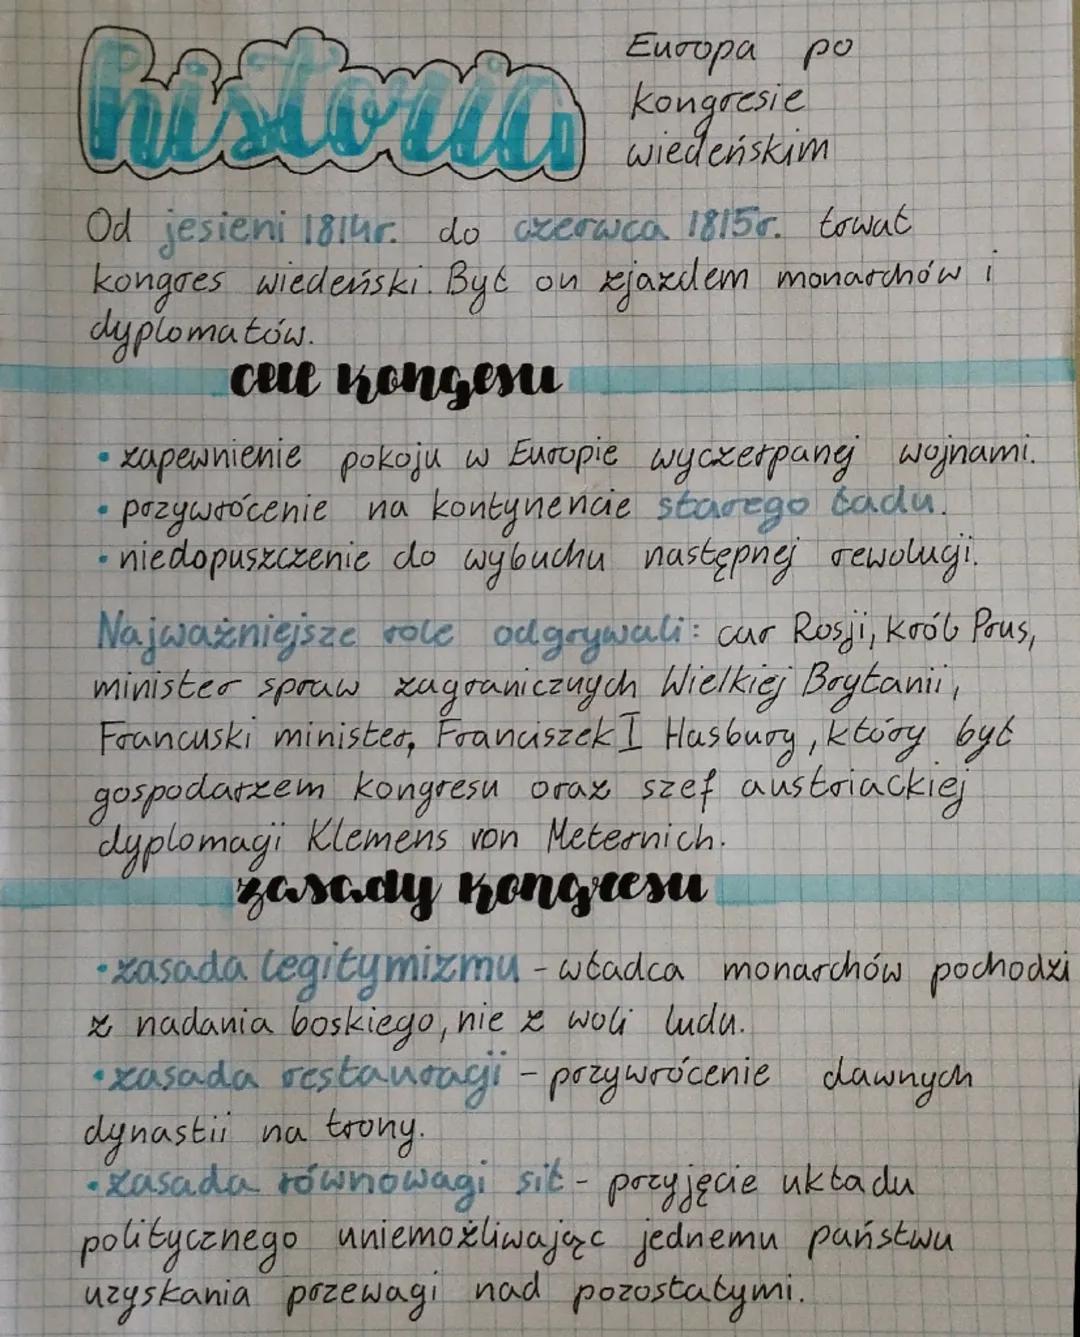 historia
Europa po
kongresie
wiedeńskim
Od jesieni 1814r. do czerwca 1815r. trwał
kongres wiedeński. Był on zjazdem monarchów i
dyplomatów.
cele kongesu
• zapewnienie pokoju w Europie wyczerpanej wojnami.
• przywrócenie na kontynencie starego ładu.
• niedopuszczenie do wybuchu następnej rewolucji.
Najważniejsze role odgrywali: car Rosji, król Prus,
minister spraw zagranicznych Wielkiej Brytanii,
Francuski minister, Franciszek I Hasburg, który był
gospodarzem kongresu oraz szef austriackiej
dyplomacji Klemens von Meternich.
zasady kongresu
• zasada legitymizmu - władca monarchów pochodzi
z nadania boskiego, nie z woli ludu.
• zasada restauracji - przywrócenie dawnych
dynastii na trony.
• zasada równowagi sił - przyjęcie układu
politycznego uniemożliwiając jednemu państwu
uzyskania przewagi nad pozostałymi.